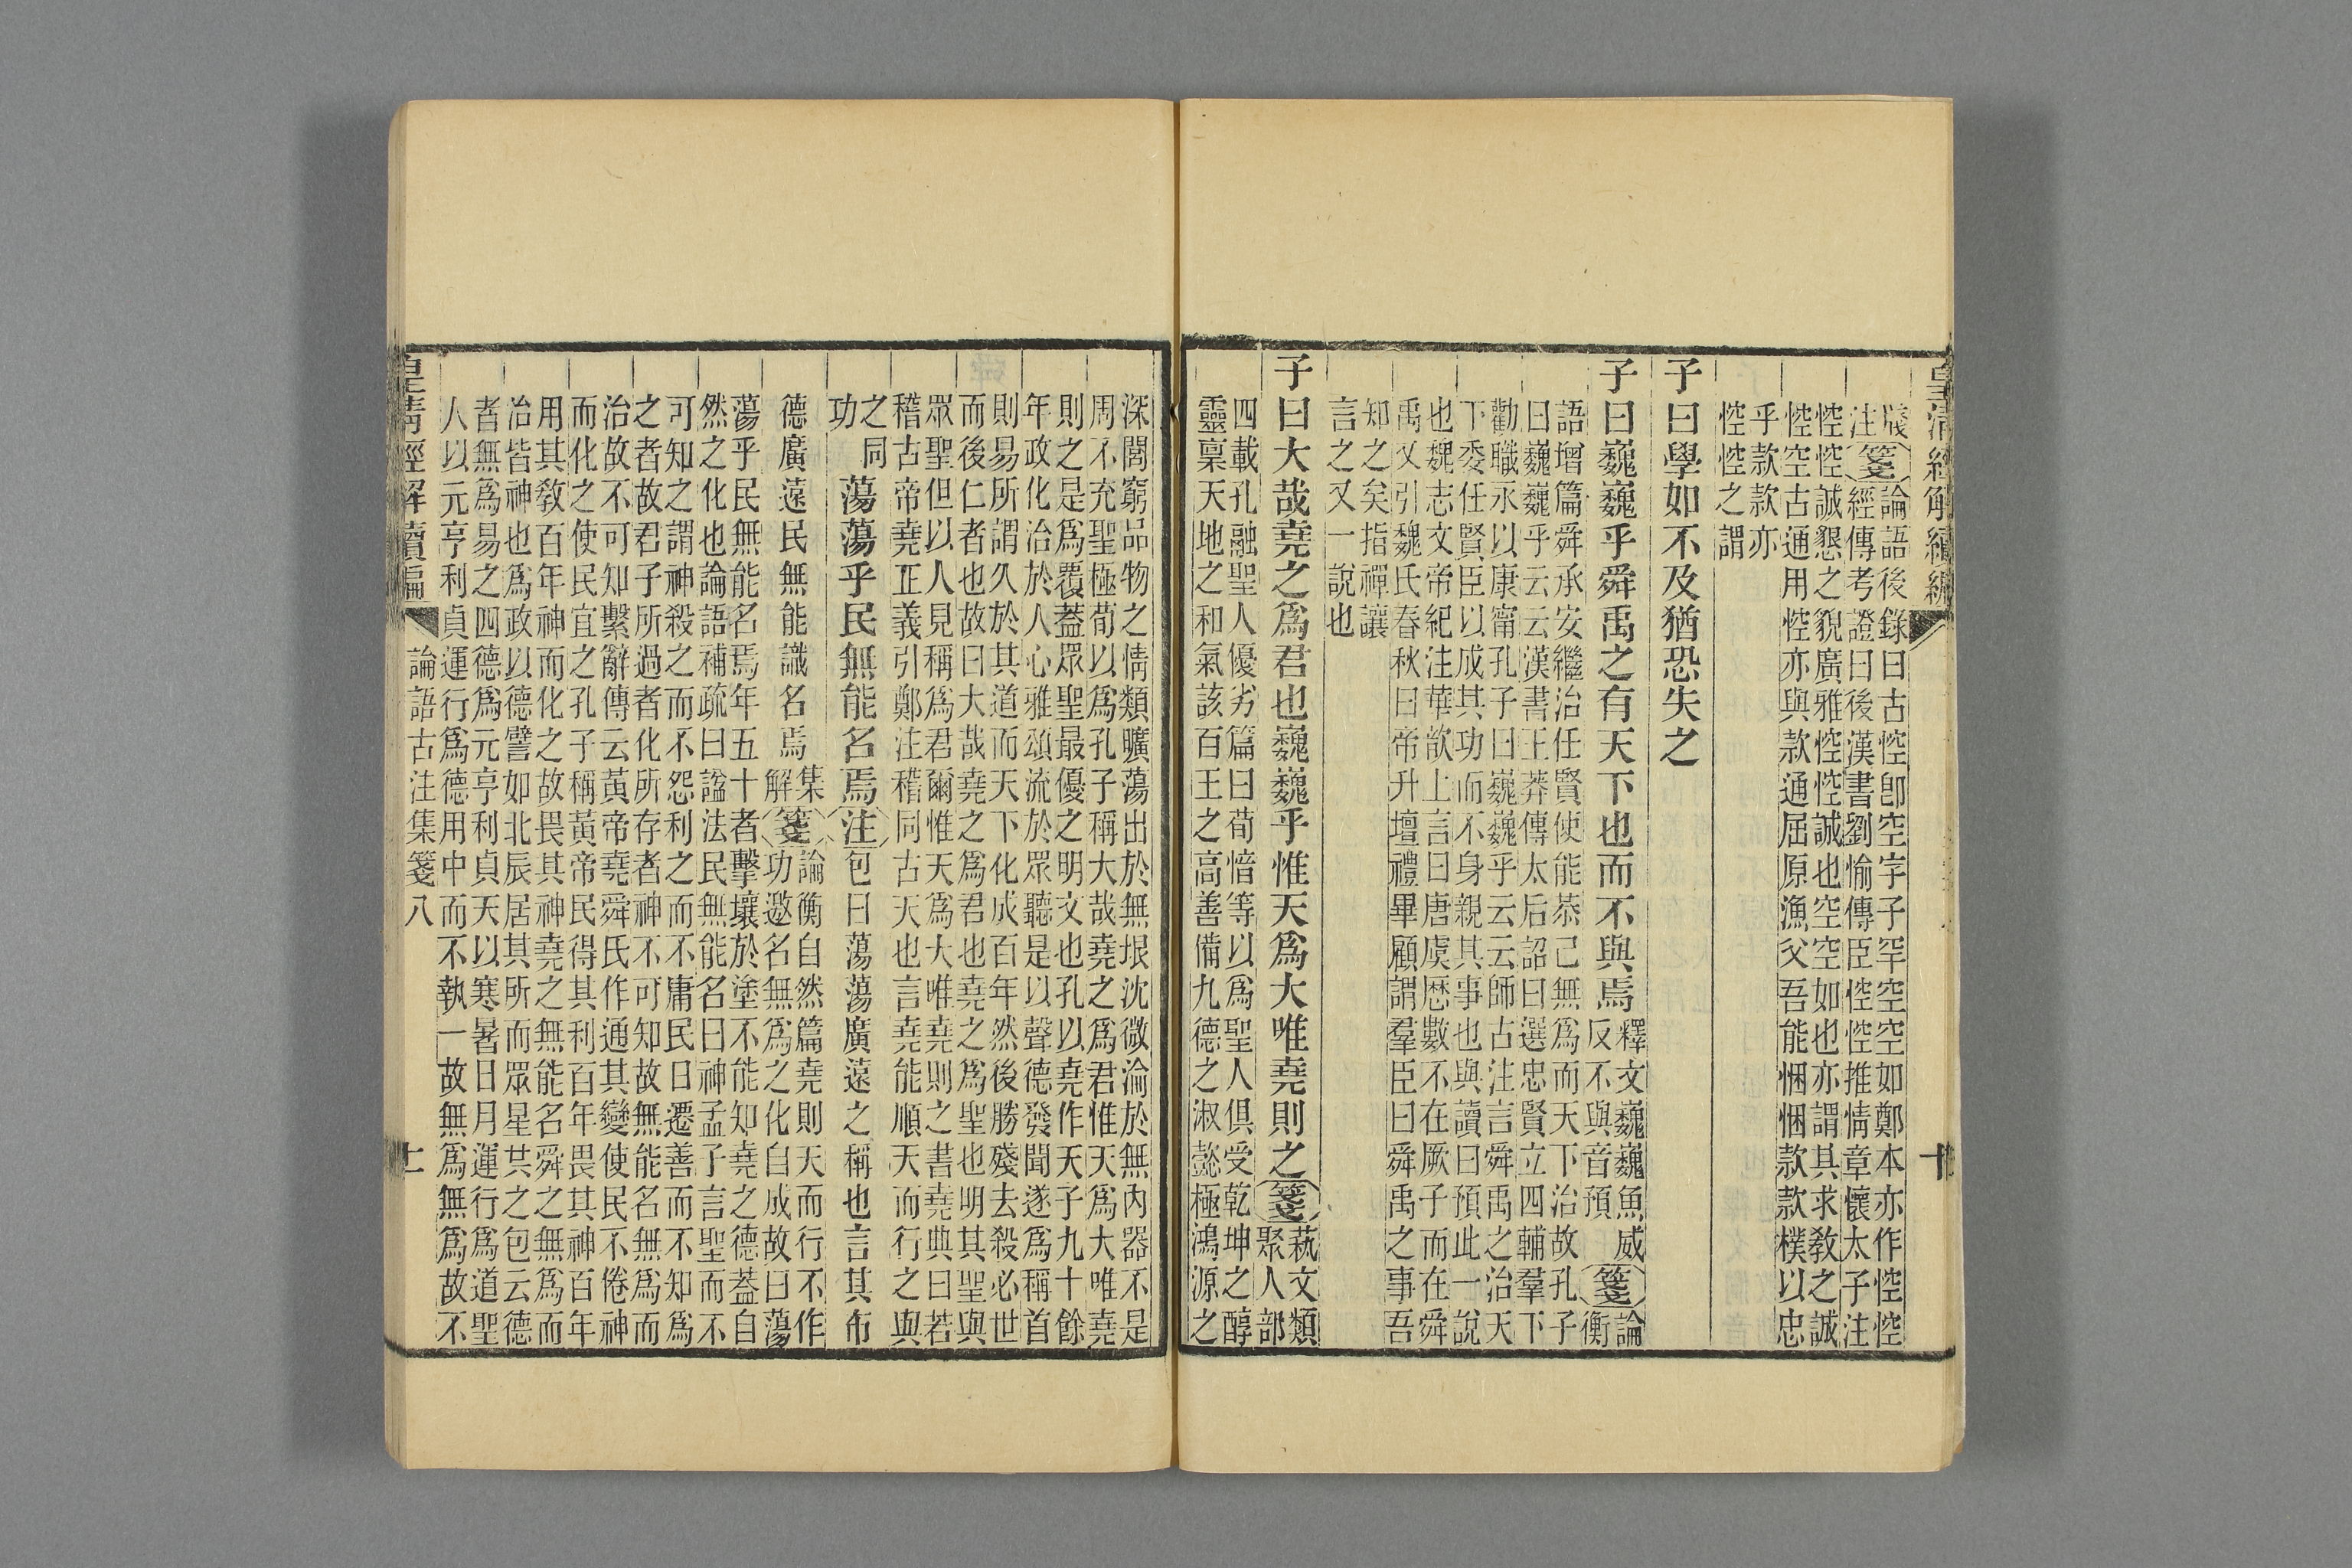 皇清經解續編
十
箋注【箋】論語後錄曰古悾卽空字子罕空空如鄭本亦作悾悾
經傳考證曰後漢書劉愉傳臣悾悾推情章懷太子注
悾悾誠懇之貌廣雅悾悾誠也空空如也亦謂其求敎之誠
悾空古通用悾亦與款通屈原漁父吾能悃悃款款樸以忠
乎款款亦
悾悾之謂
子曰學如不及猶恐失之
子曰巍巍乎舜禹之有天下也而不與焉
釋文巍巍魚威
反不與音預
【箋】論衡
語增篇舜承安繼治任賢使能恭己無爲而天下治故孔子
曰巍巍乎云云漢書王莽傳太后詔曰選忠賢立四輔羣下
勸職永以康甯孔子曰巍巍乎云云師古注言舜禹之治天
下委任賢臣以成其功而不身親其事也與讀曰預此一說
也魏志文帝紀注華歆上言曰唐虞厯數不在厥子而在舜
禹又引魏氏春秋曰帝升壇禮畢顧謂羣臣曰舜禹之事吾
知之矣指禪讓
言之又一說也
子曰大哉堯之爲君也巍巍乎惟天爲大唯堯則之【箋】
蓺文類
聚人部
四載孔融聖人優劣篇曰荀愔等以爲聖人俱受乾坤之醇
靈稟天地之和氣該百王之高善備九德之淑懿極鴻源之
深閎窮品物之情類曠蕩出於無垠沈微淪於無內器不是
周不充聖極荀以爲孔子稱大哉堯之爲君惟天爲大唯堯
則之是爲覆葢眾聖最優之明文也孔以堯作天子九十餘
年政化治於人心雅頌流於眾聽是以聲德發聞遂爲稱首
則易所謂久於其道而天下化成百年然後勝殘去殺必世
而後仁者也故曰大哉堯之爲君也堯之爲聖也明其聖與
眾聖但以人見稱爲君爾惟天爲大唯堯則之書堯典曰若
稽古帝堯正義引鄭注稽同古天也言堯能順天而行之與
之同
功
蕩蕩乎民無能名焉【注】包曰蕩蕩廣遠之稱也言其布
德廣遠民無能識名焉
集
解
【箋】論衡自然篇堯則天而行不作
功邀名無爲之化自成故曰蕩
蕩乎民無能名焉年五十者擊壤於塗不能知堯之德葢自
然之化也論語補疏曰諡法民無能名曰神孟子言聖而不
可知之謂神殺之而不怨利之而不庸民日遷善而不知爲
之者故君子所過者化所存者神不可知故無能名無爲而
治故不可知繫辭傳云黃帝堯舜氏作通其變使民不倦神
而化之使民宜之孔子稱黃帝民得其利百年畏其神百年
用其敎百年神而化之故畏其神堯之無能名舜之無爲而
治皆神也爲政以德譬如北辰居其所而眾星共之包云德
者無爲易之四德爲元亨利貞天以寒暑日月運行爲道聖
人以元亨利貞運行爲德用中而不執一故無爲無爲故不
皇清經解續編
論語古注集箋八